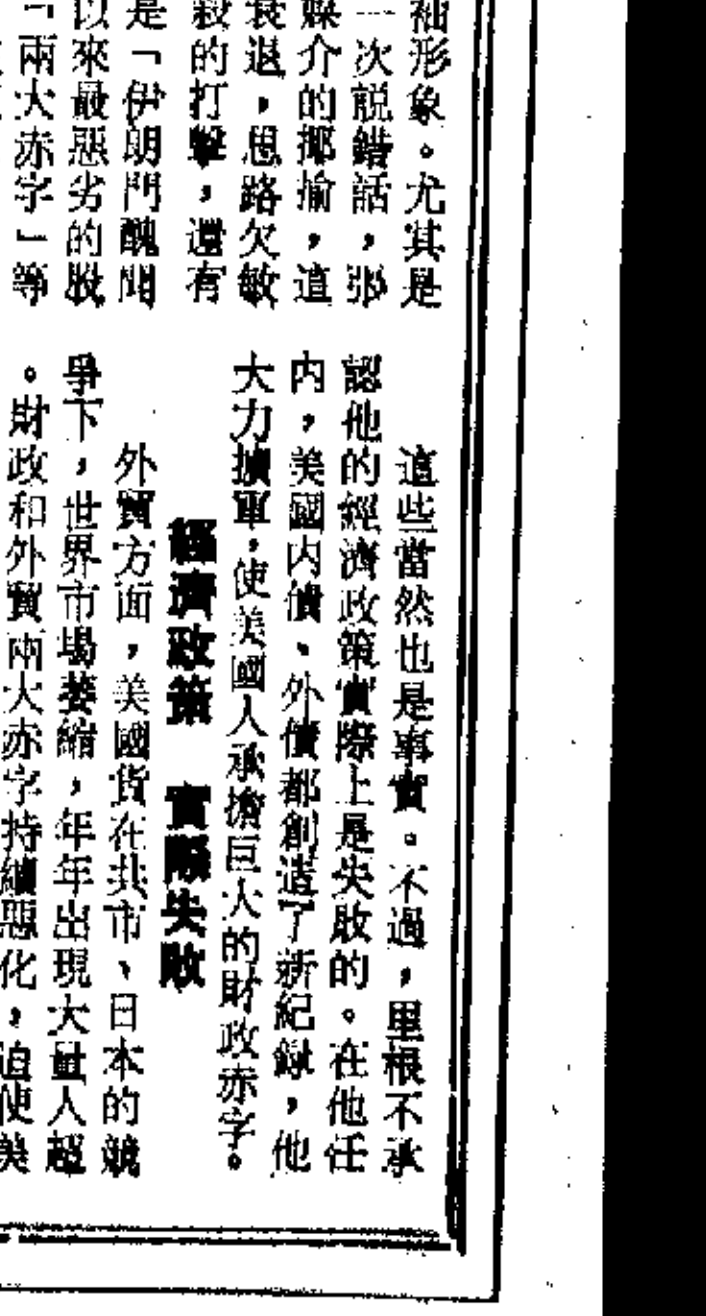 袖形象。尤其是
一次說錯話，
媒介的揶揄，這
衰退，思路欠敏
殺的打擊，還有
是「伊朗門醜聞
以來最惡劣的股
「兩大赤字」等
這些當然也是事實。不過，里根不承
認他的經濟政策實際上是失敗的。在他任
內，美國內債、外債都創造了新紀錄，他
大力擴軍，使美國人承擔巨大的財政赤字。
經濟政策　實際失敗
外貿方面，美國貨在共市、日本的競
爭下，世界市場萎縮，年年出現大量入超
。財政和外貿兩大赤字持續惡化，迫使美